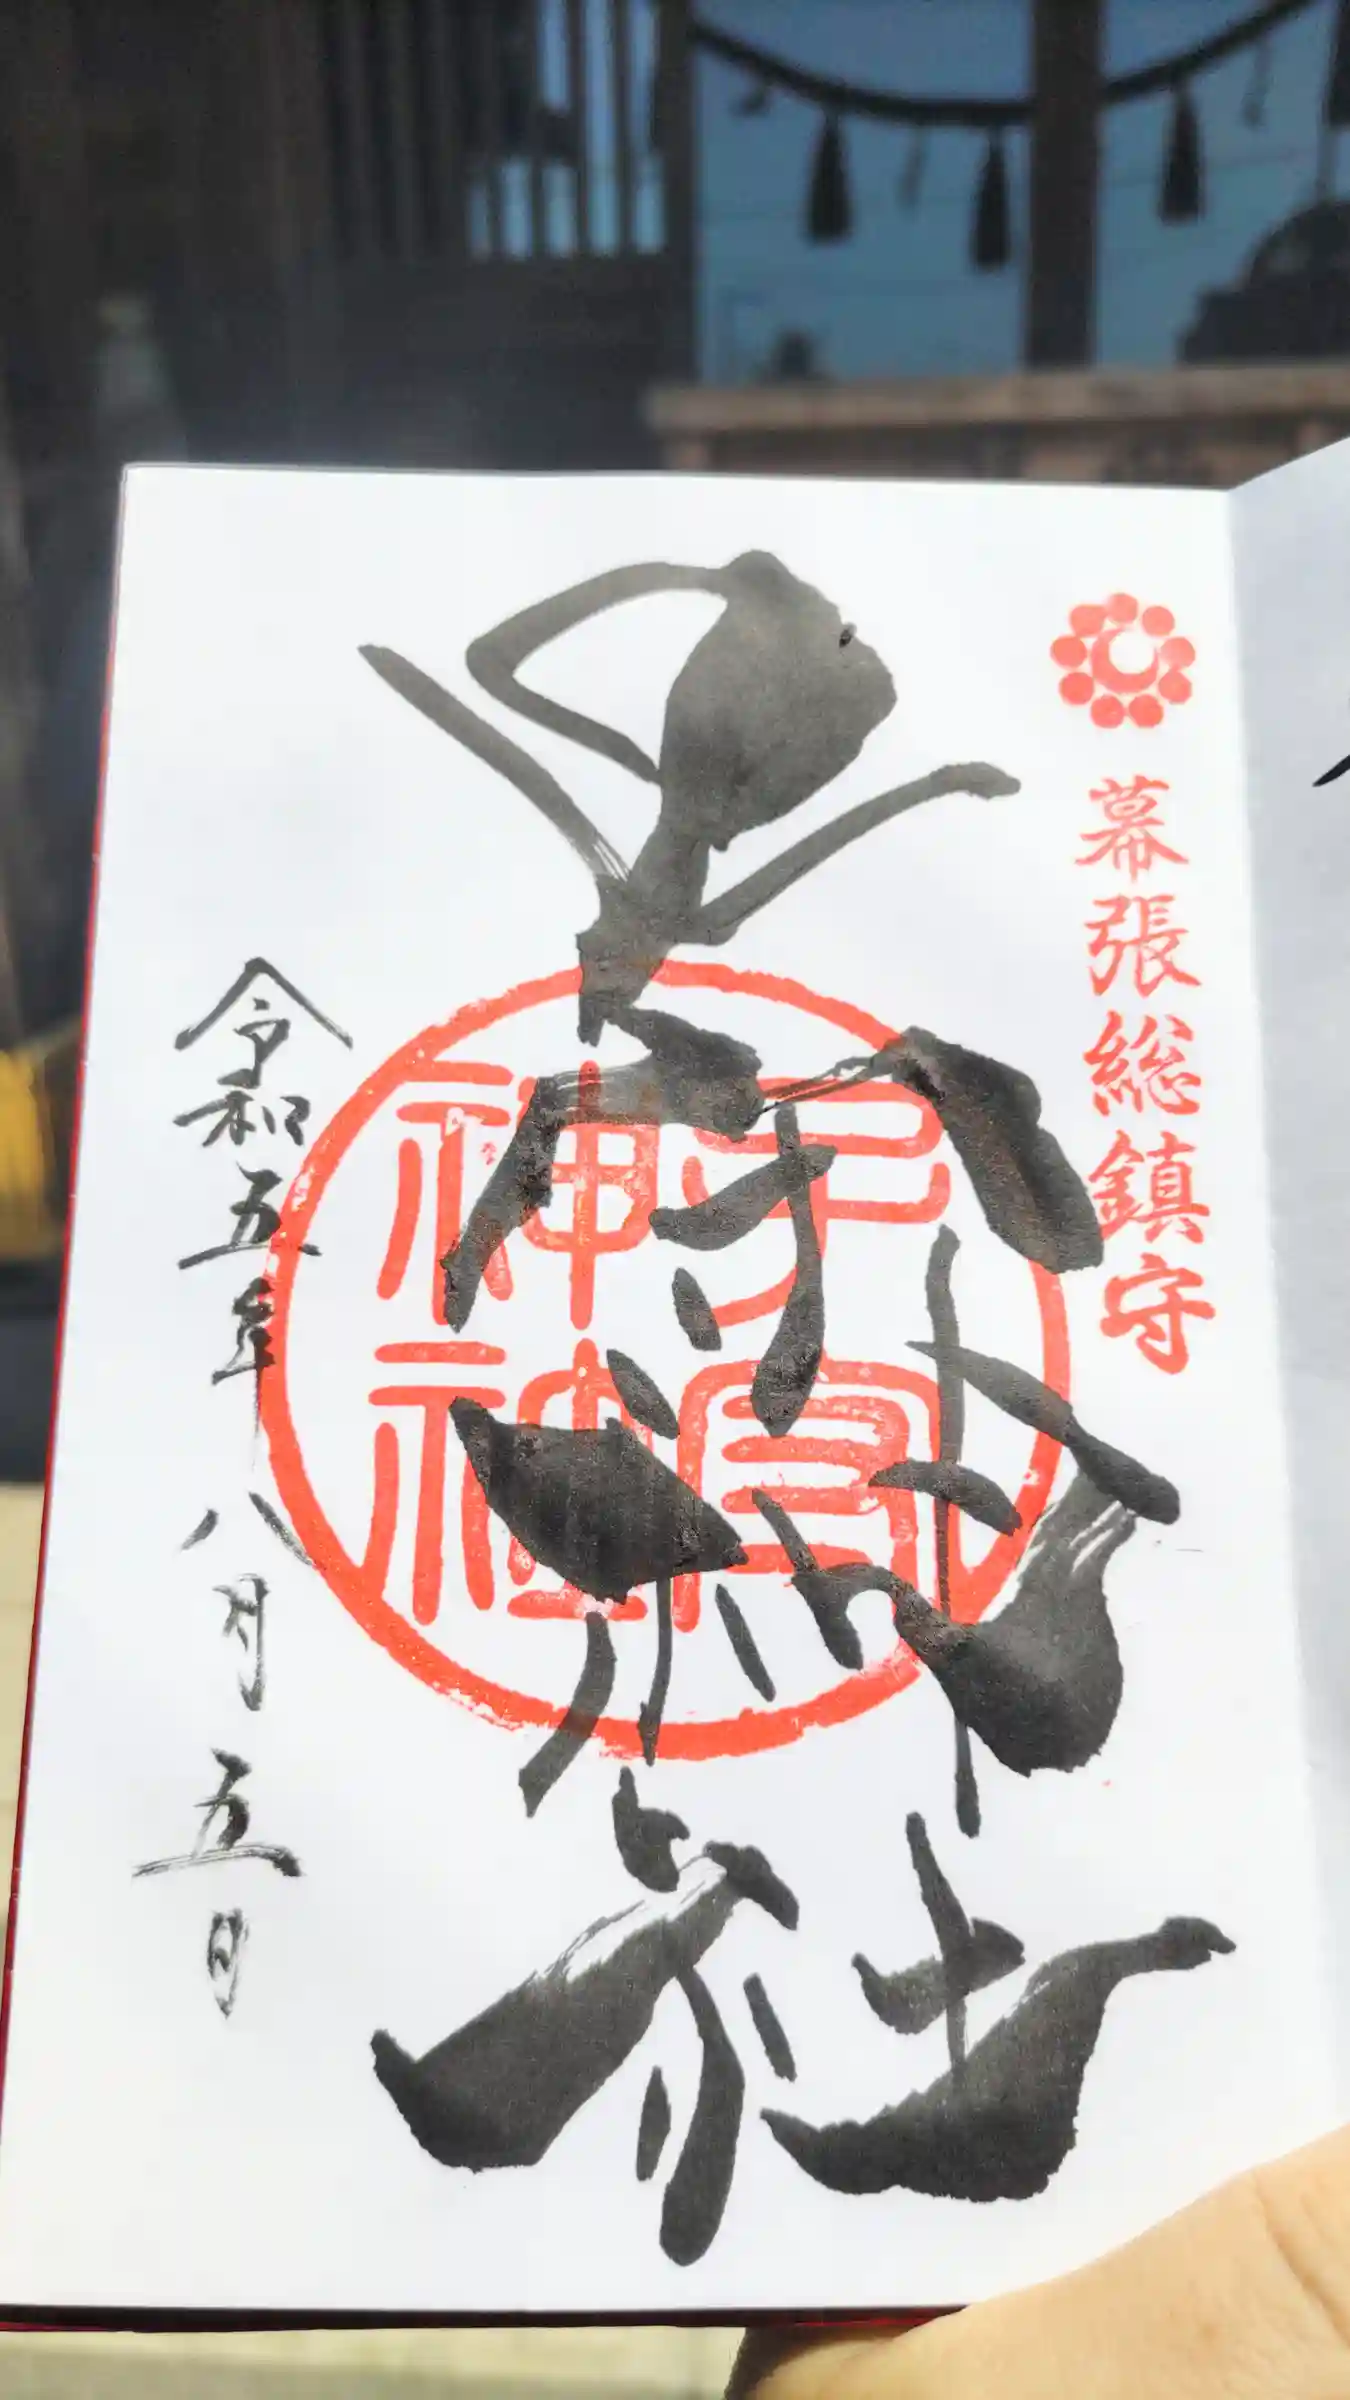 幕張総鎮守
子守神社
子守神社
令和五年八月五日